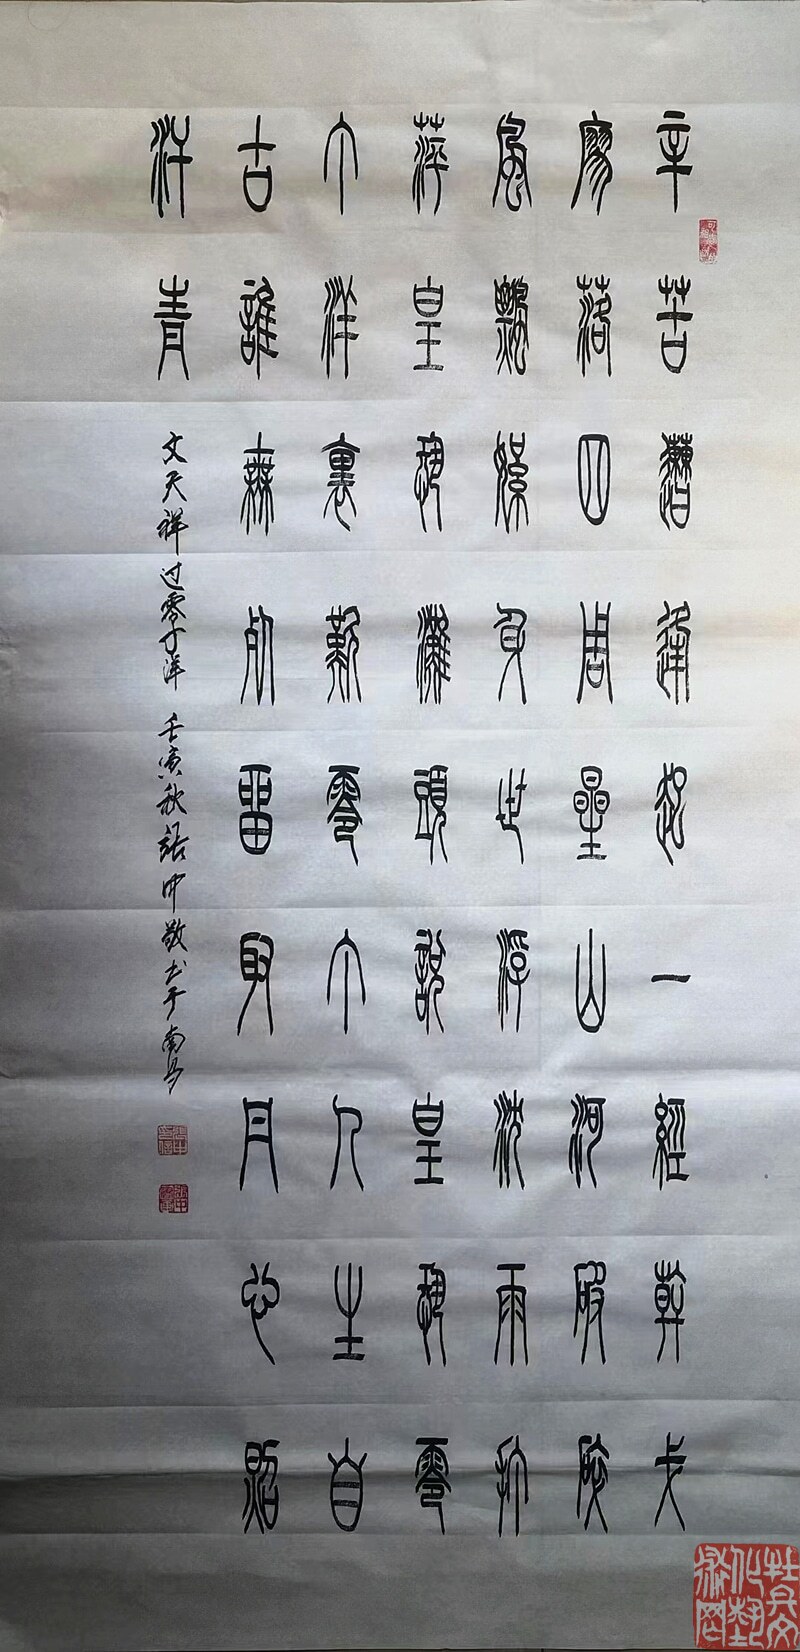 辛苦遭逢起一經幹戈
寥落四周星山河破碎
風飄絮身世浮沈雨打
萍皇恐灘頭說皇恐零
丁洋裏歎零丁人生自
古誰無死留取丹心照
汗青
文天祥过零丁洋 壬寅秋 敬书于南昌